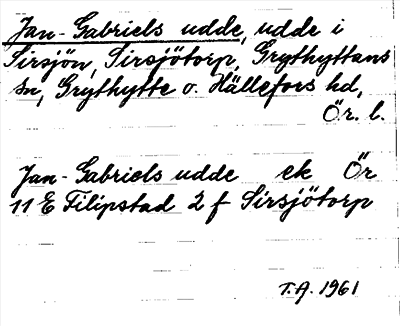 Jan-Gabriels udde, udde i
Sirsjön, Sirsjötorp, Grythyttans
sn, Grythytte o. Hällefors hd,
Ör. l.
Jan-Gabriels udde ek Ör
11 E Filipstad 2 f Sirsjötorp
T.A. 1961